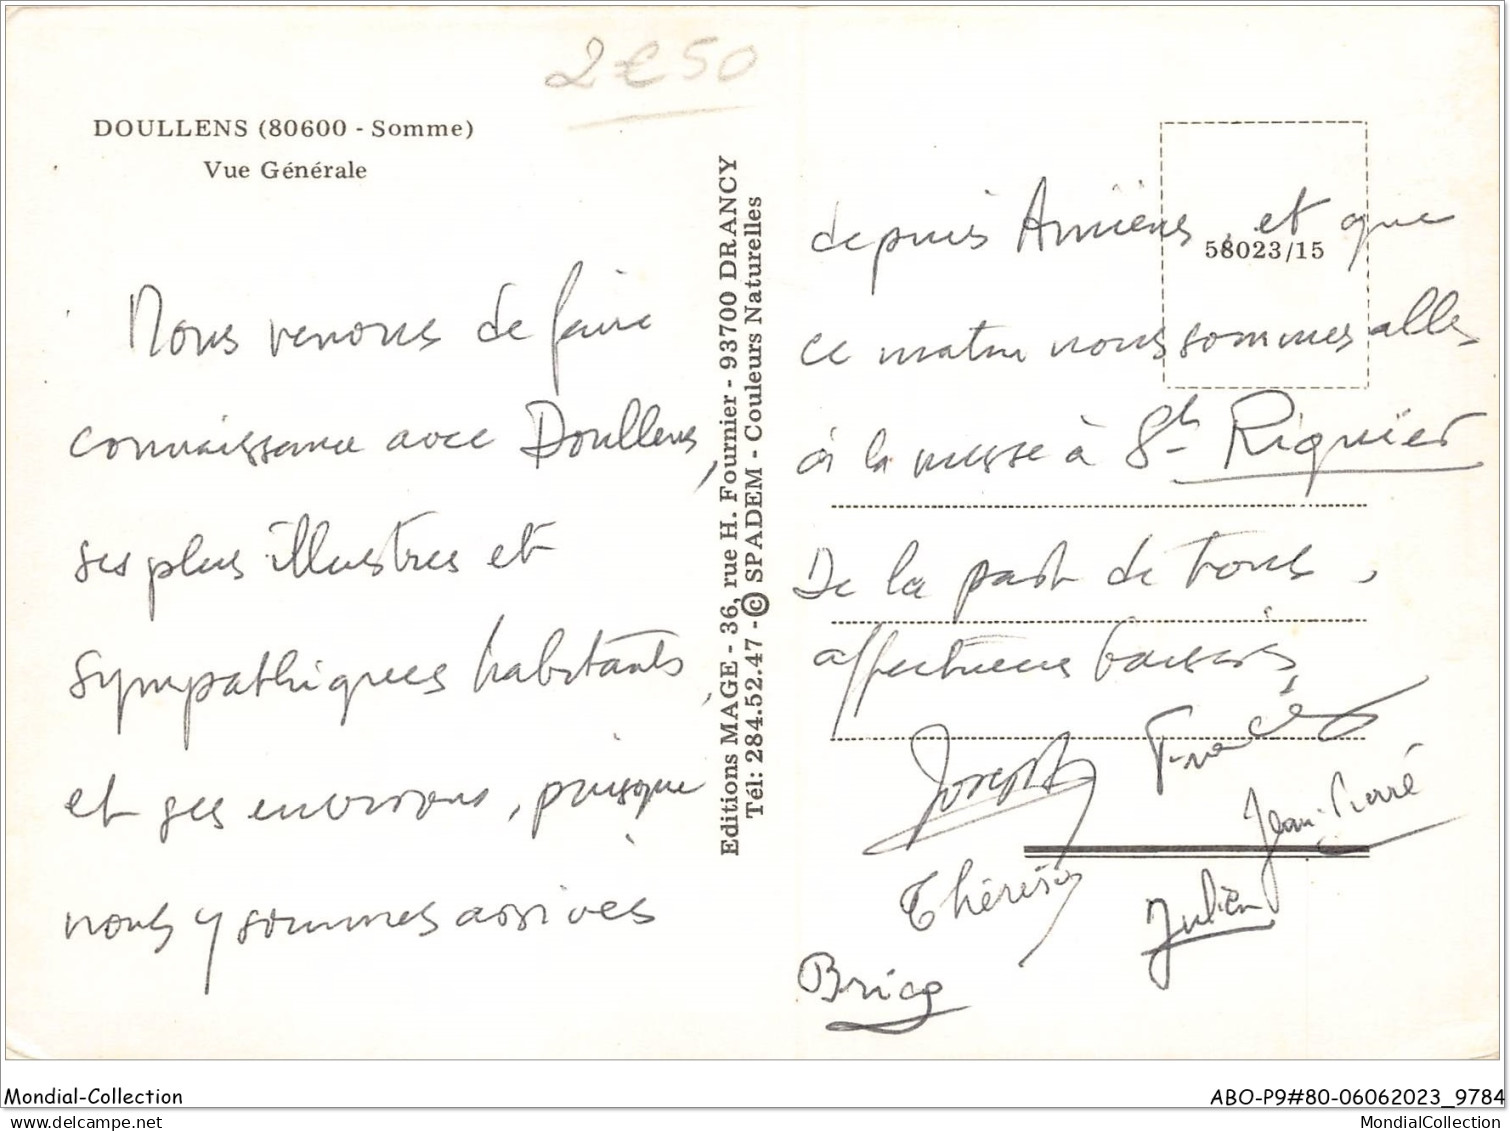 2€50
DOULLENS (80600 - Somme)
Vue Générale
Nous venons de faire
connaissance avec Doullens,
ses plus illustres et
sympathiques habitants,
et ses environs, puisque
nous y sommes arrivés
Editions MAGE - 36, rue H. Fournier - 93700 DRANCY
Tél: 284.52.47 - © SPADEM - Couleurs Naturelles
58023/15
depuis Amiens, et que
ce matin nous sommes allés
à la messe à St Riquier
De la part de tous,
affectueux baisers
Joseph
Francis
Jean-Pierre
Thérèse
Julien
Brice
Mondial-Collection
ABO-P9#80-06062023_9784
www.delcampe.net
MondialCollection